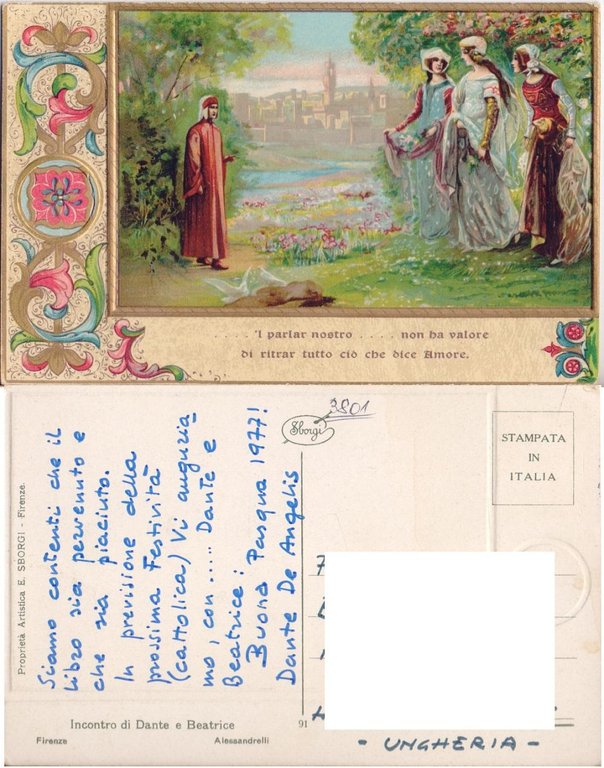 . . . . . 'l parlar nostro . . . . non ha valore
di ritrar tutto ciò che dice Amore.
Proprietà Artistica E. SBORGI - Firenze.
Siamo contenti che il
libro sia pervenuto e
che sia piaciuto.
In previsione della
prossima Festività
(cattolica) Vi auguria-
mo, con ..... Dante e
Beatrice:
Buona Pasqua 1977!
Dante De Angelis
Sborgi
3801
STAMPATA
IN
ITALIA
Incontro di Dante e Beatrice
91
Firenze
Alessandrelli
- UNGHERIA -